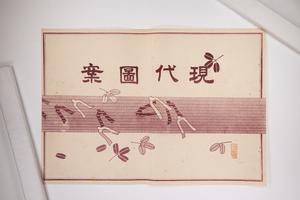 現代圖案